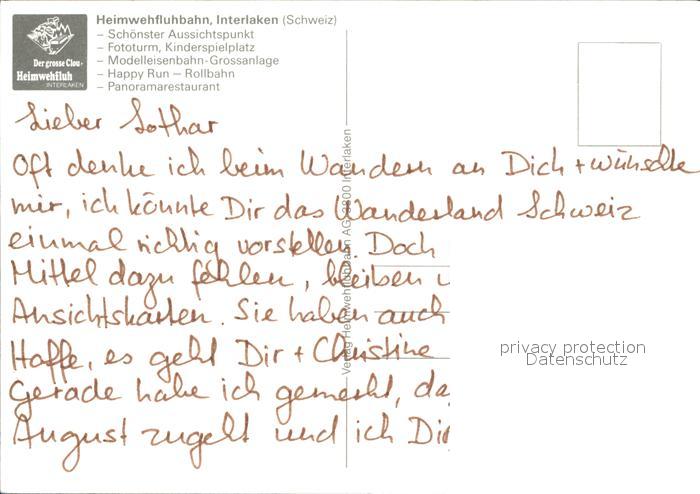 Heimwehfluhbahn, Interlaken (Schweiz)
– Schönster Aussichtspunkt
– Fototurm, Kinderspielplatz
– Modelleisenbahn-Grossanlage
– Happy Run – Rollbahn
– Panoramarestaurant
Der grosse Clou-
Heimwehfluh
INTERLAKEN
Lieber Lothar
Oft denke ich beim Wandern an Dich + wünschte
mir, ich könnte Dir das Wanderland Schweiz
einmal richtig vorstellen. Doch
Mittel dazu fehlen, bleiben
Ansichtskarten. Sie haben auch
Hoffe, es geht Dir + Christine
Gerade habe ich gemerkt, da
August zugeht und ich Dir
Verlag Heimwehfluhbahn AG, 3800 Interlaken
privacy protection
Datenschutz